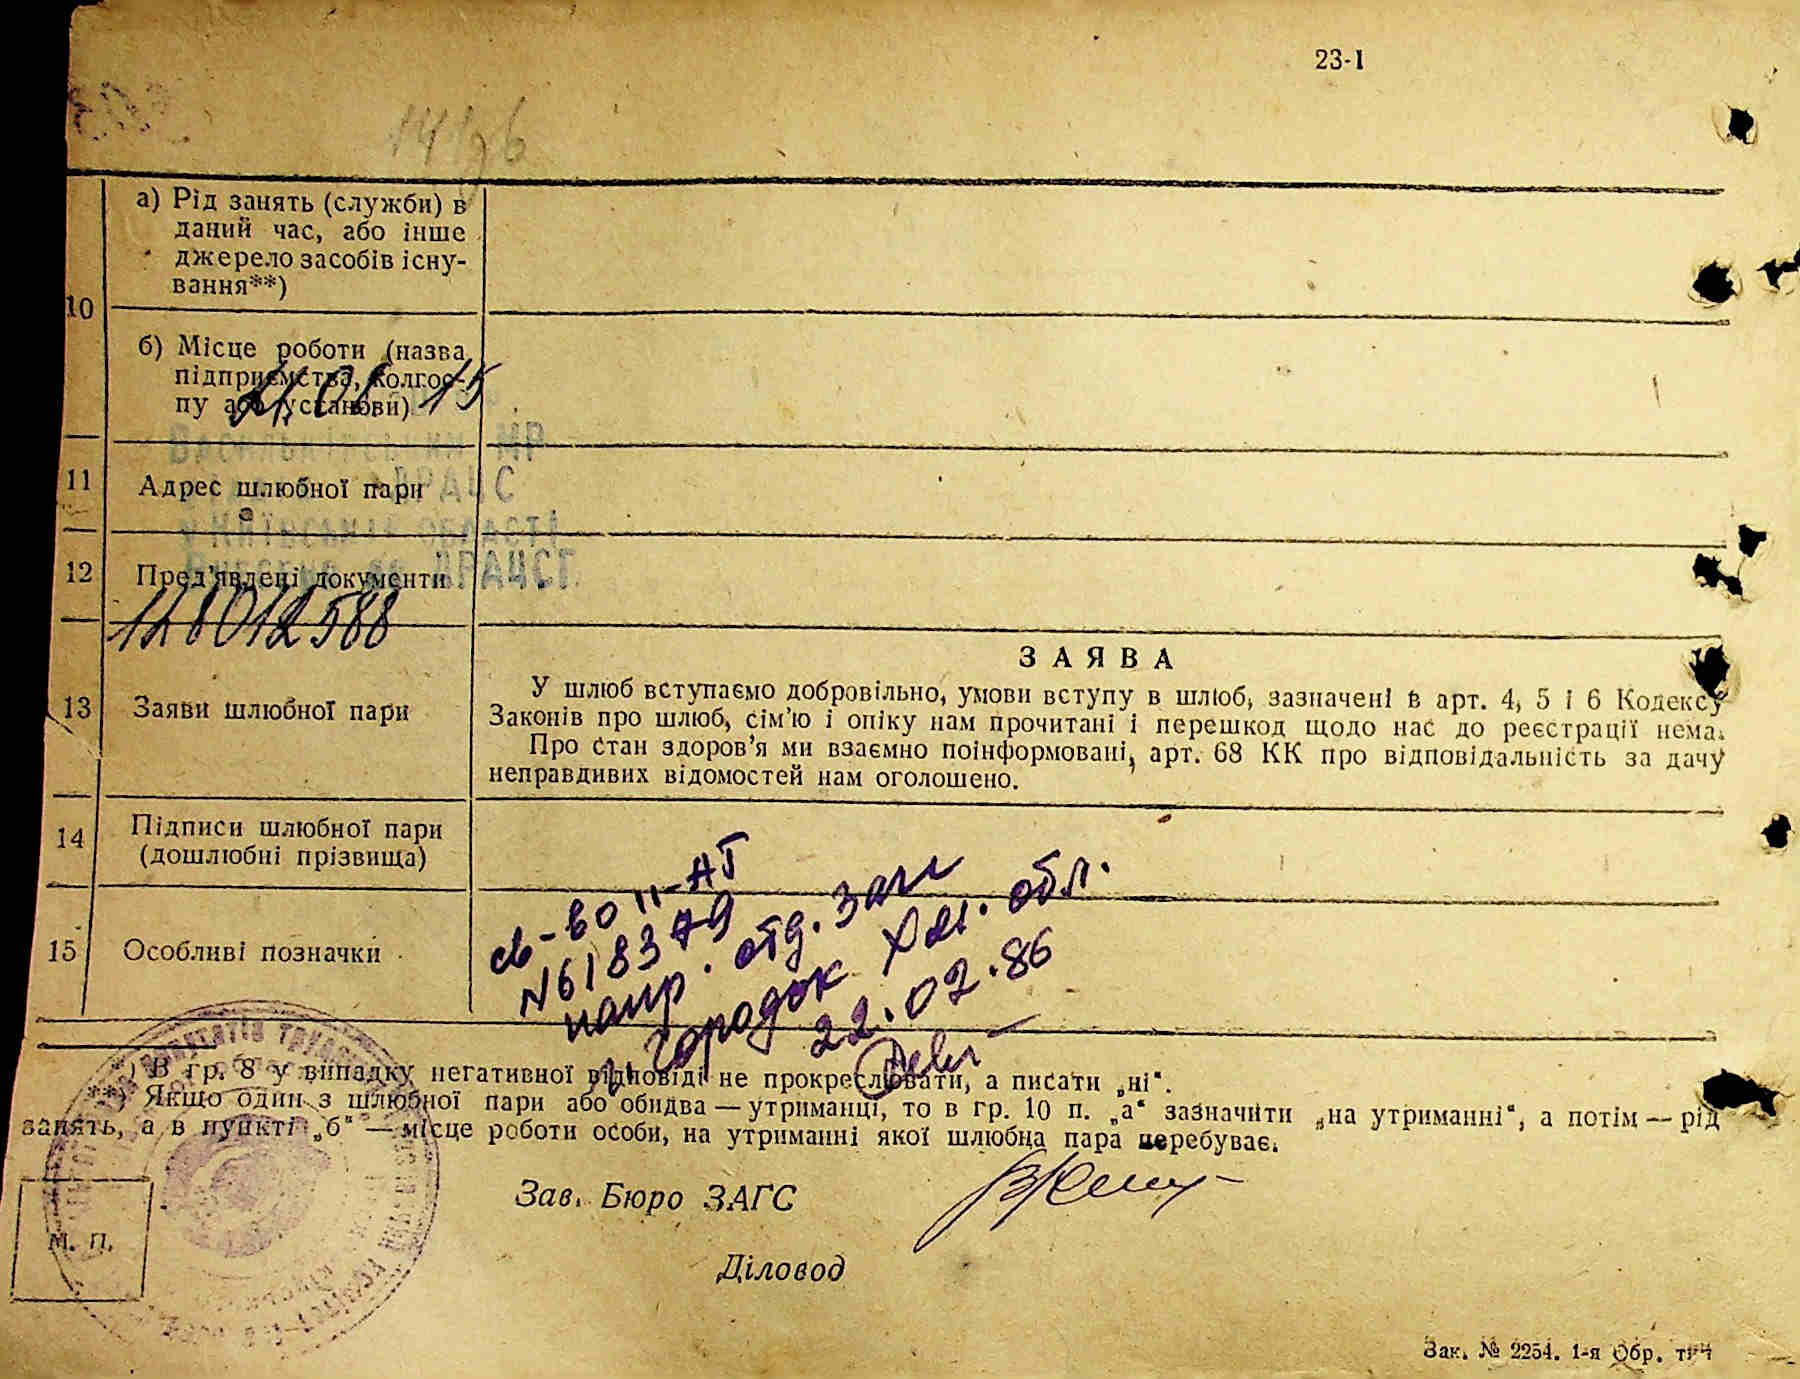 23-1
10
а) Рід занять (служби) в
даний час, або інше
джерело засобів існу-
вання**)
б) Місце роботи (назва
підприємства, колгос-
пу або установи)
21.01.15
Васильківський МР
ДРАЦС
у Київській області
ДРАЦСГ
11
Адрес шлюбної пари
12
Пред'явлені документи
128012588
13
Заяви шлюбної пари
ЗАЯВА
У шлюб вступаємо добровільно, умови вступу в шлюб, зазначені в арт. 4, 5 і 6 Кодексу
Законів про шлюб, сім'ю і опіку нам прочитані і перешкод щодо нас до реєстрації нема.
Про стан здоров'я ми взаємно поінформовані, арт. 68 КК про відповідальність за дачу
неправдивих відомостей нам оголошено.
14
Підписи шлюбної пари
(дошлюбні прізвища)
15
Особливі позначки
св-во II-АГ
N618379
напр. отд. загс
городок Хм. обл.
22.02.86
*) В гр. 8 у випадку негативної відповіді не прокреслювати, а писати „ні“.
**) Якщо один з шлюбної пари або обидва — утриманці, то в гр. 10 п. „а“ зазначити „на утриманні“, а потім — рід
занять, а в пункті „б“ — місце роботи особи, на утриманні якої шлюбна пара перебуває.
Зав. Бюро ЗАГС
М. П.
Діловод
Зак. № 2254. 1-я Обр. тип